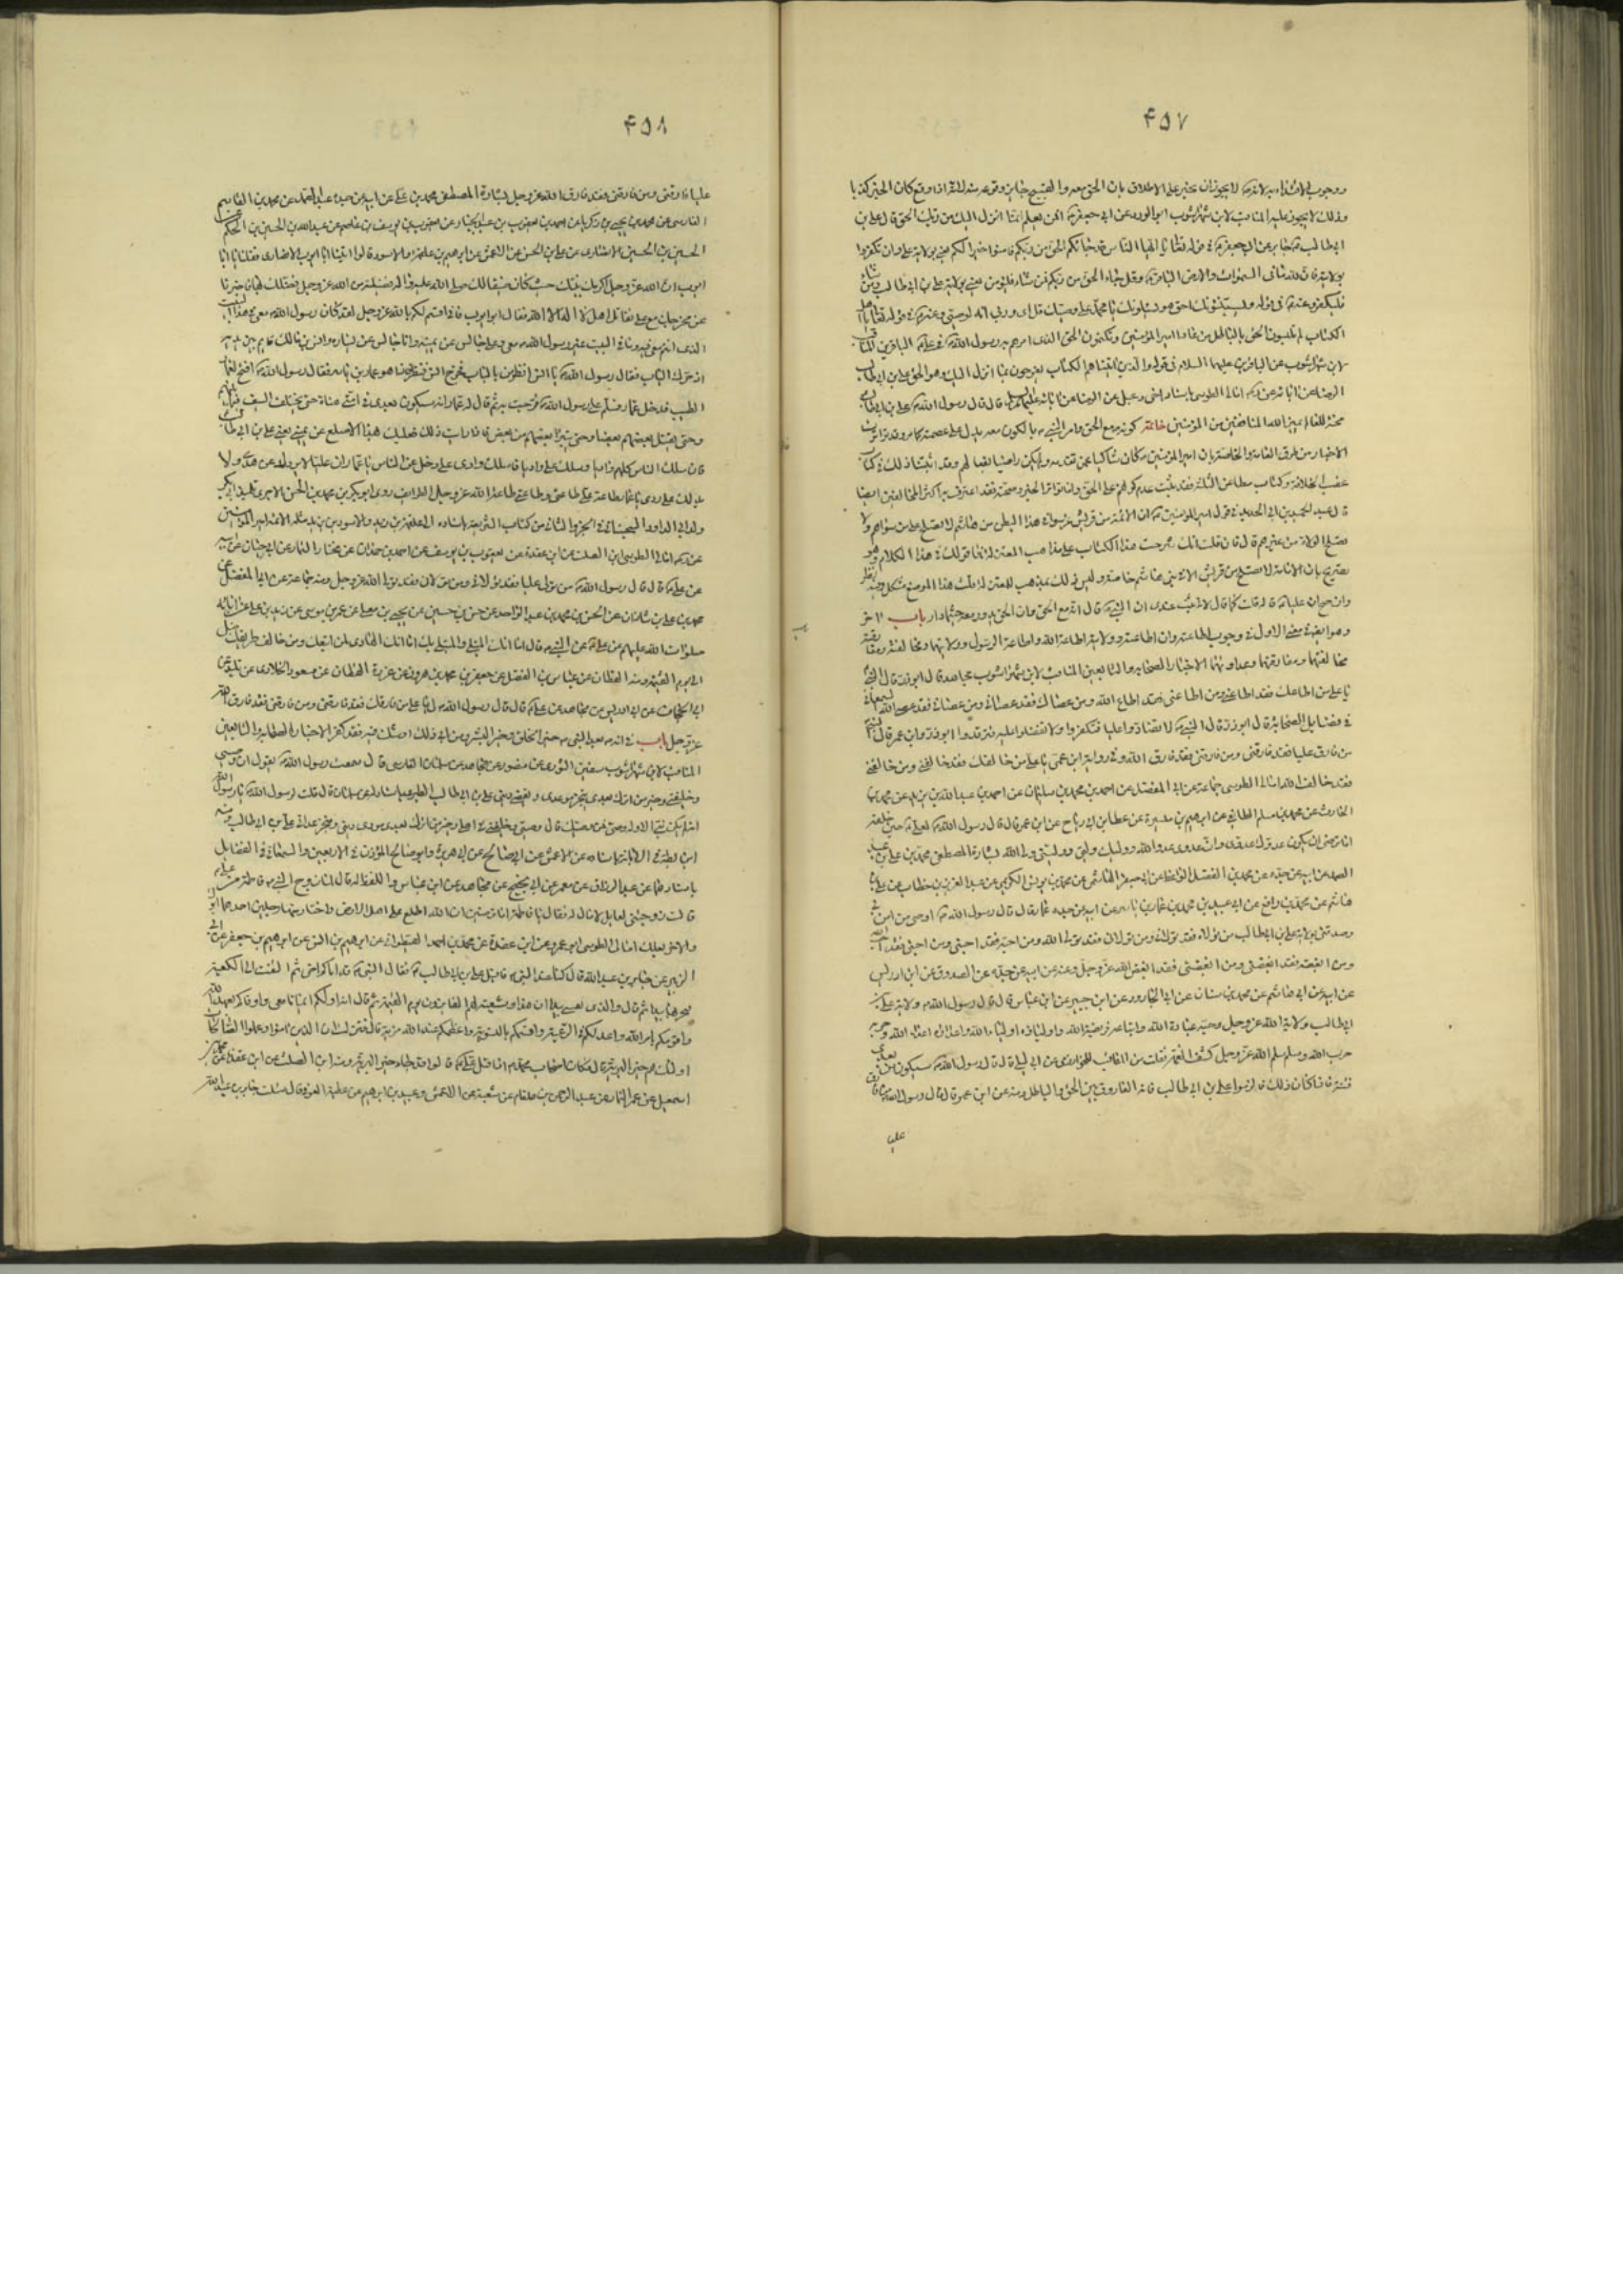 ۴۵۷
ووجوب الاقتداء به لانه لا يجوز ان يخبر على الاطلاق بان الحق معه والقبيح جايز وقوعه منه لانه اذا وقع كان الخبر كذبا
وذلك لا يجوز عليه المناقب لابن شهراشوب ابو الورد عن ابي جعفر افمن يعلم انما انزل اليك من ربك الحق قال علي بن
ابي طالب جابر عن ابي جعفر في قوله تعالى يا ايها الناس قد جائكم الحق من ربكم فامنوا خيرا لكم يعني بولاية علي وان تكفروا
بولايته فان لله ما في السموات والارض الباقر وقل جاء الحق من ربكم فمن شاء فليؤمن يعني بولاية علي بن ابي طالب ومن شاء
فليكفر وعنه في قوله ويستنبئونك احق هو يسئلونك يا محمد علي وصيك قل اي وربي انه لوصيي وعنه في قوله تعالى يا اهل
الكتاب لم تلبسون الحق بالباطل وتكتمون الحق الذي امرهم به رسول الله في علي الباقرين
لابن شهراشوب عن الباقر عليهما السلام في قوله والذين اتيناهم الكتاب يفرحون بما انزل اليك وهو الحق علي بن ابي طالب
الرضا عن ابائه عن امالي الطوسي باسناد اخي دعبل عن الرضا عن ابائه قال قال رسول الله علي بن ابي طالب
محنة للعالم يميز الله المنافقين من المؤمنين خاتمة كونه مع الحق وامر النبي بالكون معه يدل على عصمته كما مر وقد تواترت
الاخبار من طرق العامة والخاصة بان امير المؤمنين كان شاكيا عمن تقدمه ولم يكن راضيا بفعالهم وقد اثبتنا ذلك في كتاب
غصب الخلافة وكتاب مطاعن الثلثة فقد ثبت عدم كونهم على الحق واما تواتر الخبر وصحته فقد اعترف به اكثر المخالفين ايضا
قال عبد الحميد بن ابي الحديد في قول امير المؤمنين ان الائمة من قريش غرسوا في هذا البطن من هاشم لا تصلح على من سواهم ولا
تصلح الولاة من غيرهم قال فان قلت انك شرحت هذا الكتاب على مذاهب المعتزلة فما قولك في هذا الكلام وهو
تصريح بان الامامة لا تصلح من قريش الا في بني هاشم خاصة وليس ذلك بمذهب للمعتزلة قلت هذا الموضع مشكل وفيه نظر
وان صح ان عليا قاله قلت كما قال لانه ثبت عندي ان النبي قال انه مع الحق وان الحق يدور معه حيثما دار باب اخر
وهو ايضا بمعنى الاول في وجوب اطاعته وان اطاعته وولايته اطاعة الله واطاعة الرسول وولايتهما ومخالفته ومفارقته
مخالفتهما ومفارقتهما وعداوتهما الاخبار الصحابة والتابعين المناقب لابن شهراشوب مجاهد قال ابوذر قال النبي
يا علي من اطاعك فقد اطاعني ومن اطاعني فقد اطاع الله ومن عصاك فقد عصاني ومن عصاني فقد عصى الله
في فضايل الصحابة قال ابوذر قال النبي لا تضادوا عليا فتكفروا ولا تفضلوا عليه فترتدوا ابوذر وابن عمر قال النبي
من فارق عليا فقد فارقني ومن فارقني فقد فارق الله وفي رواية ابن عمر يا علي من خالفك فقد خالفني ومن خالفني
فقد خالف الله امالي الطوسي جماعة عن ابي المفضل عن احمد بن محمد بن سليمان عن احمد بن عبد الله بن يزيد عن محمد بن
الحارث عن محمد بن مسلم الطائفي عن ابرهيم بن ميسرة عن عطا بن ابي رباح عن ابن عمر قال قال رسول الله لعلي حين خلفه
اما ترضى ان يكون عدوك عدوي وان عدوي عدو الله ووليك وليي ووليي ولي الله بشارة المصطفى محمد بن علي بن عبد
الصمد عن ابيه عن جده عن محمد بن الفضل الواعظ عن ابي جعفر الهاشمي عن محمد بن يونس الكريمي عن عبد العزيز بن خطاب عن علي بن
هاشم عن محمد بن رافع عن ابي عبيد بن محمد بن عمار بن ياسر عن ابيه عن جده عمار قال قال رسول الله اوصي من امن بي
وصدقني بولاية علي بن ابي طالب من تولاه فقد تولاني ومن تولاني فقد تولى الله ومن احبه فقد احبني ومن احبني فقد احب الله
ومن ابغضه فقد ابغضني ومن ابغضني فقد ابغض الله عز وجل وعنه عن ابيه عن جده عن الصدوق عن ابن ادريس
عن ابيه عن ابي هاشم عن محمد بن سنان عن ابي الجارود عن ابن جبير عن ابن عباس قال قال رسول الله ولاية علي بن
ابي طالب ولاية الله عز وجل وحبه عبادة الله واتباعه فريضة الله واولياؤه اولياء الله واعداؤه اعداء الله وحربه
حرب الله وسلمه سلم الله عز وجل كشف الغمة نقلت من المناقب للخوارزمي عن ابي ليلى قال قال رسول الله سيكون من بعدي
فتنة فاذا كان ذلك فالزموا علي بن ابي طالب فانه الفاروق بين الحق والباطل ومنه عن ابن عمر قال قال رسول الله من فارق
عليا
۴۵۸
عليا فارقني ومن فارقني فقد فارق الله عز وجل بشارة المصطفى محمد بن علي عن ابيه عن جده عبد الصمد عن محمد بن القاسم
الفارسي عن محمد بن يحيى بن زكريا عن احمد بن يعقوب بن عبد الجبار عن يعقوب بن يوسف بن عاصم عن عبد الله بن الحسين بن الحكم
الحسين بن الحسين الانصاري عن علي بن الحسن عن الاعمش عن ابرهيم بن علقمة والاسود قالوا اتينا ابا ايوب الانصاري فقلنا يا ابا
ايوب ان الله عز وجل اكرمك بنبيك فضيلة من الله عز وجل فضلك بها فاخبرنا
عن مخرجك مع علي تقاتل اهل لا اله الا الله فقال ابو ايوب فاني اقسم لكم بالله عز وجل لقد كان رسول الله معي في هذا البيت
الذي انتم معي فيه وما في البيت غير رسول الله معي وعلي جالس عن يمينه وانا جالس عن يساره وانس بن مالك قايم بين يديه
اذ حرك الباب فقال رسول الله يا انس انظر من بالباب فخرج انس فنظر فاذا هو عمار بن ياسر فقال رسول الله افتح لعمار
الطيب فدخل عمار فسلم على رسول الله فرحب به ثم قال له يا عمار انه سيكون بعدي في امتي هناة حتى يختلف السيف فيما بينهم
وحتى يقتل بعضهم بعضا وحتى يتبرأ بعضهم من بعض فاذا رايت ذلك فعليك بهذا الاصلع عن يميني يعني علي بن ابي طالب
فان سلك الناس كلهم واديا وسلك علي واديا فاسلك وادي علي وخل عن الناس يا عمار ان عليا لا يردك عن هدى ولا
يدلك على ردى يا عمار طاعة علي طاعتي وطاعتي طاعة الله عز وجل الطرايف روى ابو بكر بن محمد بن الحسن الاجري تلميذ ابي بكر
ولد ابي داود السجستاني في الجزء الثاني من كتاب الشريعة باسناده الى علقمة بن زيد والاسود بن يزيد مثله
امالي الطوسي ابن الصلت عن ابن عقدة عن يعقوب بن يوسف عن احمد بن حماد عن مختار التمار عن ابي حيان عن ابيه
عن علي قال قال رسول الله من تولى عليا فقد تولاني ومن تولاني فقد تولى الله عز وجل ومنه جماعة عن ابي المفضل عن
محمد بن علي بن شاذان عن الحسن بن محمد بن عبد الواحد عن حسن بن حسين عن يحيى بن يعلى عن عمر بن موسى عن زيد بن علي عن ابائه
صلوات الله عليهم عن علي عن النبي قال له يا علي انك المبتلى والمبتلى بك اما انك الهادي لمن اتبعك ومن خالف طريقك ضل
الى يوم القيمة ومنه القطان عن عباس بن الفضل عن جعفر بن محمد بن هرون عن عزرة القطان عن مسعود الخلادي عن تليد عن
ابي الحجاف عن ابي ادريس عن مجاهد عن علي قال قال رسول الله يا علي من فارقك فقد فارقني ومن فارقني فقد فارق الله
عز وجل باب في انه بعد النبي خير الخلق وخير البشر ومن ابى ذلك او شك فيه فقد كفر الاخبار الصحابة والتابعين
المناقب لابن شهراشوب سفين الثوري عن منصور عن مجاهد عن سلمان الفارسي قال سمعت رسول الله يقول ان وصيي
وخليفتي وخير من اترك بعدي ينجز موعدي ويقضي ديني علي بن ابي طالب الطبري باسناده عن سلمان قال قلت لرسول الله يا رسول الله
انه لم يكن نبي الا وله وصي فمن وصيك قال وصيي وخليفتي في اهلي وخير من اترك بعدي مؤدي ديني ومنجز عداتي علي بن ابي طالب
ابن بطة في الابانة باسناده عن الاعمش عن ابي صالح عن ابي هريرة وابو صالح المؤذن في الاربعين والسمعاني في الفضايل
باسنادهما عن عبد الرزاق عن معمر عن ابن ابي نجيح عن مجاهد عن ابن عباس واللفظ له قال لما زوج النبي فاطمة من علي
قالت زوجتني لعايل لا مال له فقال يا فاطمة اما ترضين ان الله اطلع على اهل الارض واختار منها رجلين احدهما ابوك
والاخر بعلك امالي الطوسي ابو عمرو عن ابن عقدة عن محمد بن احمد القطواني عن ابرهيم بن انس عن ابرهيم بن جعفر عن ابي
الزبير عن جابر بن عبد الله قال كنا عند النبي فاقبل علي بن ابي طالب فقال النبي قد اتاكم اخي ثم التفت الى الكعبة
فضربها بيده ثم قال والذي نفسي بيده ان هذا وشيعته لهم الفايزون يوم القيمة ثم قال انه اولكم ايمانا معي واوفاكم بعهد الله
واقومكم بامر الله واعدلكم في الرعية واقسمكم بالسوية واعظمكم عند الله مزية قال فنزلت ان الذين امنوا وعملوا الصالحات
اولئك هم خير البرية قال فكان اصحاب محمد اذا اقبل علي قالوا قد جاء خير البرية ومنه ابن الصلت عن ابن عقدة عن محمد بن
اسمعيل عن عمر التمار عن عبد الرحمن بن هلقام عن شعبة عن الاعمش وعبيد بن ابرهيم عن عطية العوفي قال سئلت جابر بن عبد الله